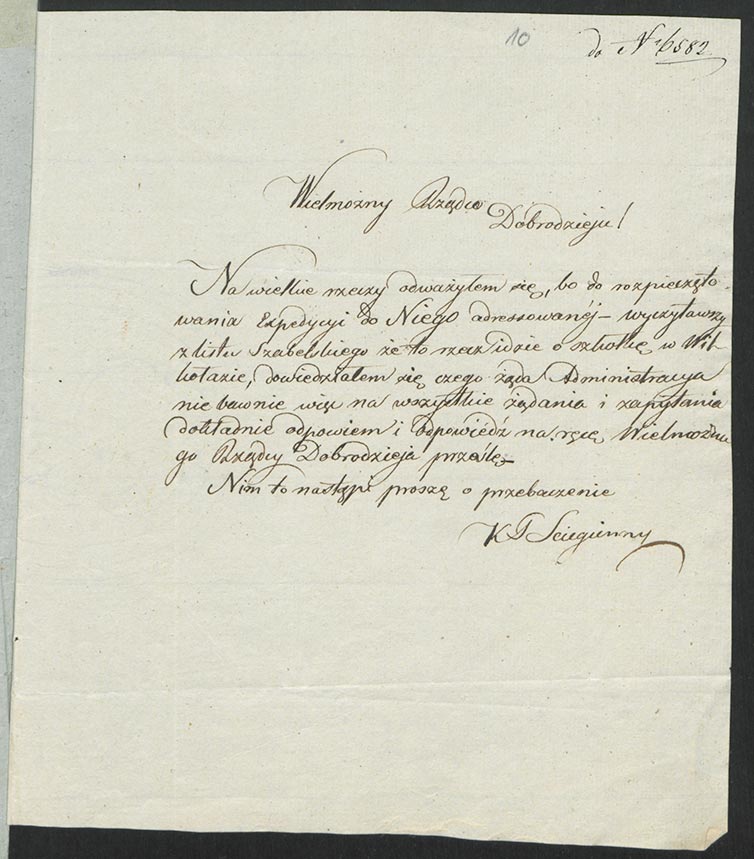 10
do Nr 16582
Wielmożny Rządco
Dobrodzieju!
Na wielkie rzeczy odważyłem się, bo do rozpieczęto-
wania Expedycyi do Niego adressowanéj – wyczytawszy
z listu Szabelskiego że to rzecz idzie o szkołkę w Wil-
kołazie, dowiedziałem się czego żąda Administracya
niebawnie więc na wszystkie żądania i zapytania
dokładnie odpowiem i odpowiédź na ręce Wielmożne
go Rządcy Dobrodzieja prześlę –
Nim to nastąpi proszę o przebaczenie
X P Sciegienny